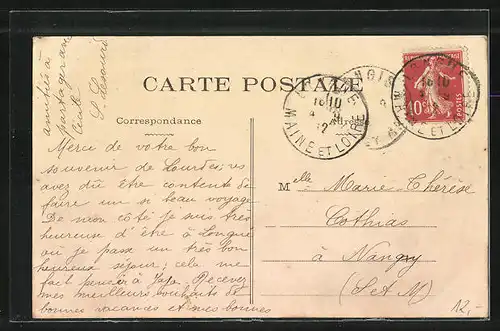 amitiés à
partager avec
Cécile
CARTE POSTALE
Correspondance
Merci de votre bon
souvenir de Lourdes; vs
avez dû être contente de
faire un si beau voyage
De mon côté je suis très
heureuse d'être à Longué
où je passe un très bon
heureux séjour; cela me
fait penser à Jaja. Recevez
mes meilleurs souhaits de
bonnes vacances et mes bonnes
MAINE ET LOIRE
10c
POSTES
Melle Marie-Thérèse
Cothias
à Nangis
(S et M)
12,-